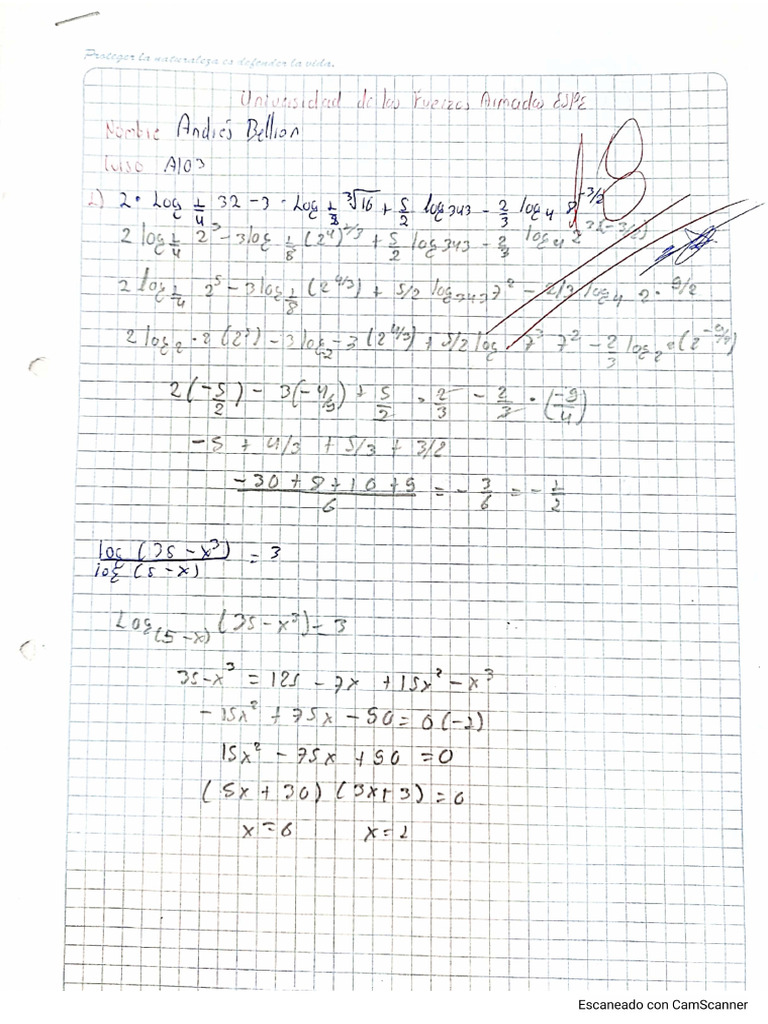 Proteger la naturaleza es defender la vida.
Universidad de las Fuerzas Armadas ESPE
Nombre Andrés Bellion
Curso A103
18
1) 2 · Log 1/4 32 - 3 · Log 1/8 ∛16 + 5/2 log 343 - 2/3 log 4 8^-3/2
2 log 1/4 2^5 - 3 log 1/8 (2^4)^1/3 + 5/2 log 343 - 2/3 log 4 2
2 log 1/4 2^5 - 3 log 1/8 (2^4/3) + 5/2 log 343 7^2 - 2/3 log 4 2 · 9/2
2 log 2 · 2 (2^5) - 3 log 2 - 3 (2^4/3) + 5/2 log 7^3 7^2 - 2/3 log 2 (2^-9/2)
2(-5/2) - 3(-4/9) + 5/2 · 2/3 - 2/3 · (-9/4)
-5 + 4/3 + 5/3 + 3/2
-30 + 8 + 10 + 9 / 6 = - 3/6 = - 1/2
log (35 - x^3) / log (5 - x) = 3
Log (5 - x) (35 - x^3) = 3
35 - x^3 = 125 - 7x + 15x^2 - x^3
- 15x^2 + 75x - 90 = 0 (-1)
15x^2 - 75x + 90 = 0
(5x + 30) (3x + 3) = 0
x = 6 x = 1
Escaneado con CamScanner